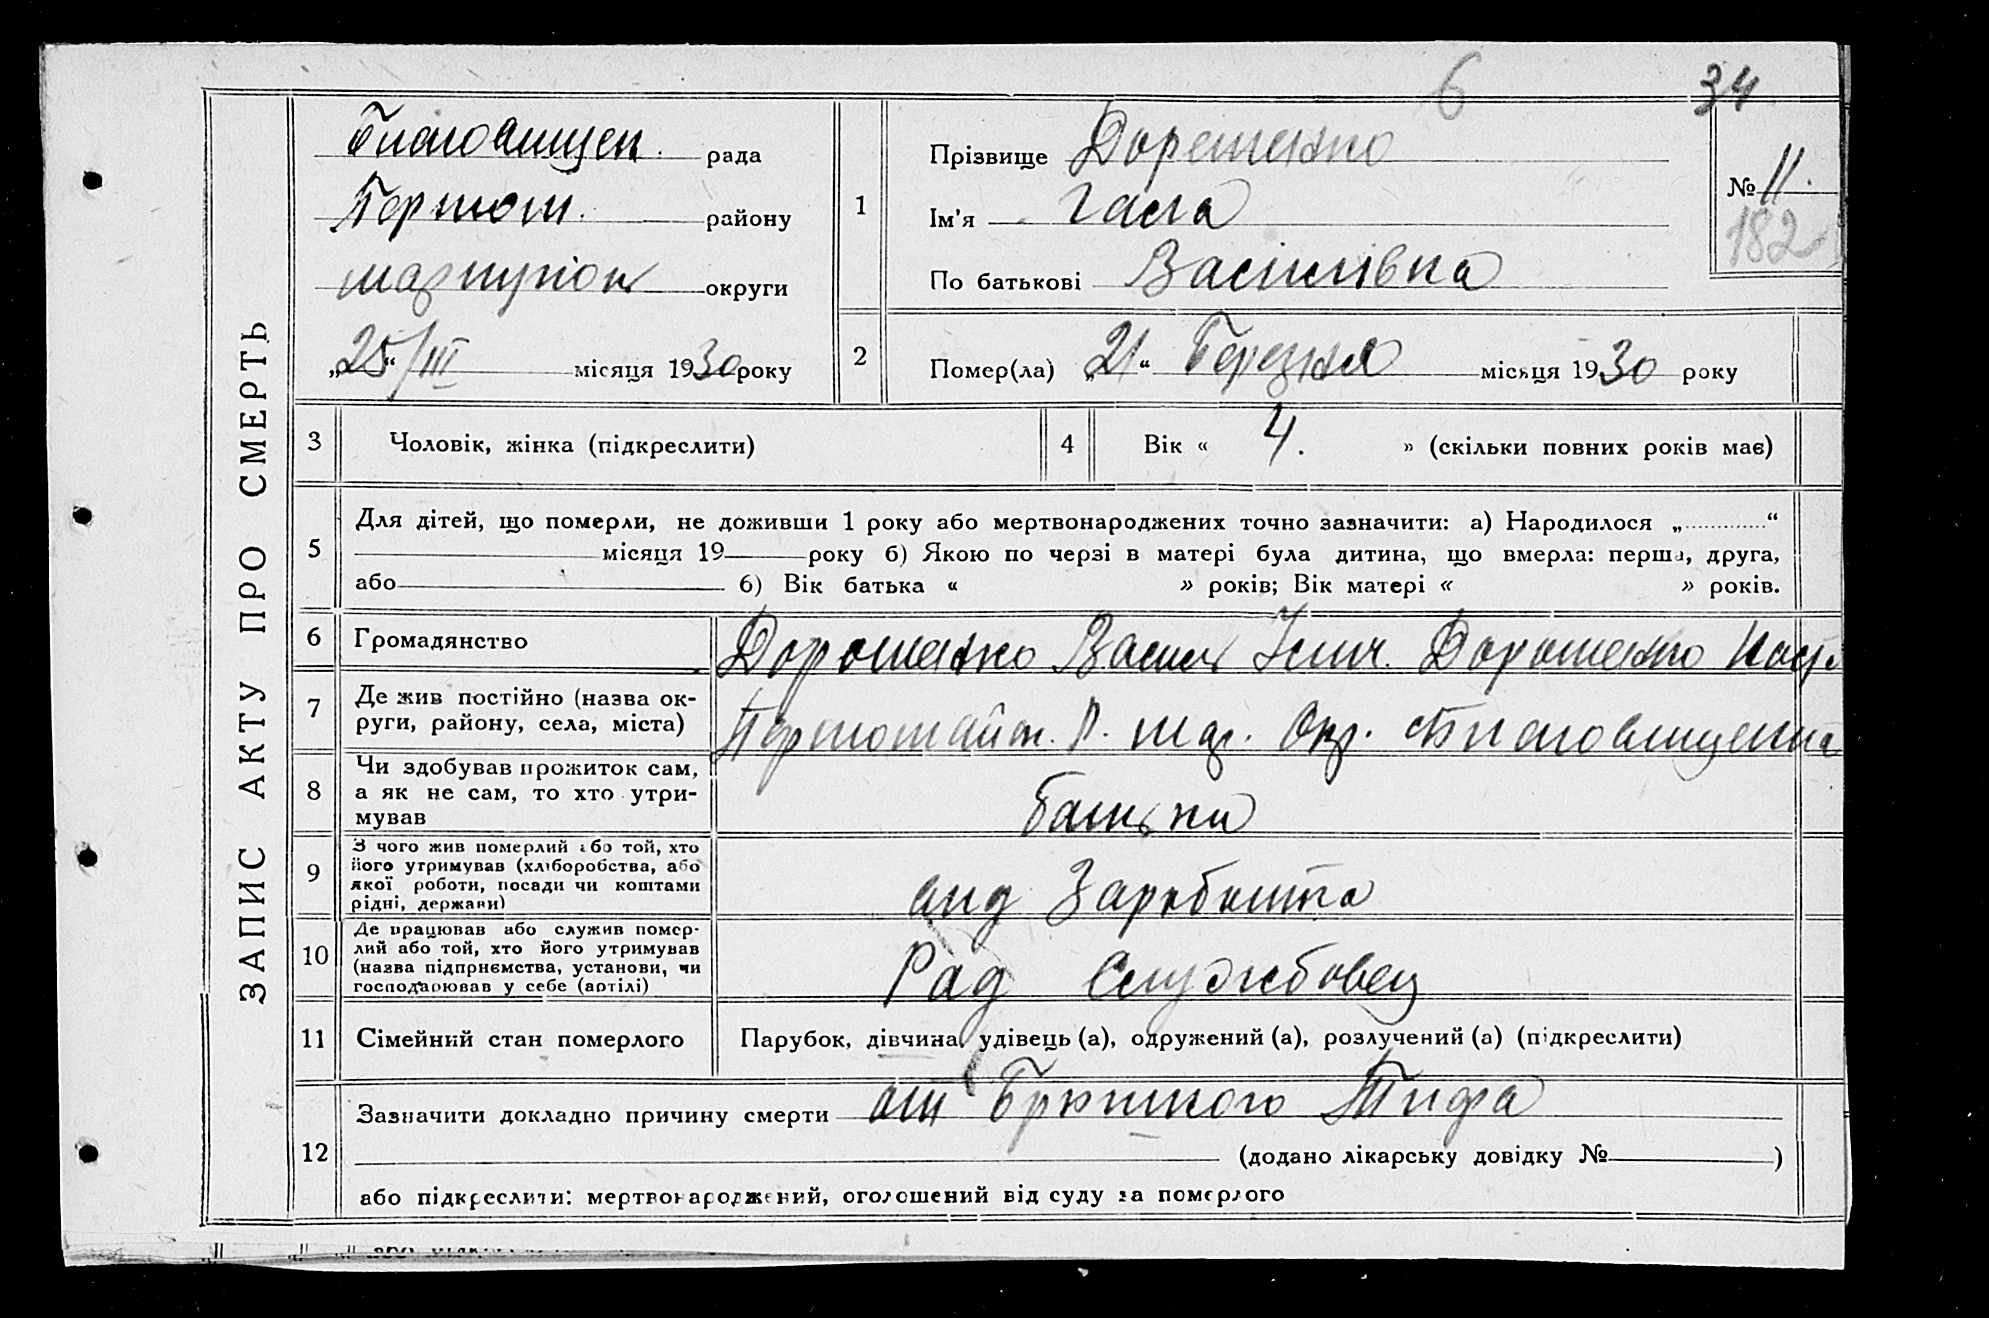 6 34
ЗАПИС АКТУ ПРО СМЕРТЬ
рада
району
округи
„25“/III місяця 1930 року
1
Прізвище Дорошенко
Ім'я
По батькові Васілівна
№ 11.
182
2
Помер(ла) „21“ Березня місяця 1930 року
3 Чоловік, жінка (підкреслити)
4 Вік « 4. » (скільки повних років має)
5 Для дітей, що померли, не доживши 1 року або мертвонароджених точно зазначити: а) Народилося „ “
місяця 19 року б) Якою по черзі в матері була дитина, що вмерла: перша, друга,
або б) Вік батька « » років; Вік матері « » років.
6 Громадянство Дорошенко Василь Дорошенко
7 Де жив постійно (назва ок-
руги, району, села, міста) Першотайн. Р. Окр.
8 Чи здобував прожиток сам,
а як не сам, то хто утри-
мував батьки
9 З чого жив померлий або той, хто
його утримував (хліборобства, або
якої роботи, посади чи коштами
рідні, держави) Заробитка
10 Де працював або служив помер-
лий або той, хто його утримував
(назва підприємства, установи, чи
господарював у себе (артілі) Рад Службовец
11 Сімейний стан померлого Парубок, дівчина, удівець (а), одружений (а), розлучений (а) (підкреслити)
12 Зазначити докладно причину смерти от Брюшного Тифа
(додано лікарську довідку № )
або підкреслити: мертвонароджений, оголошений від суду за померлого